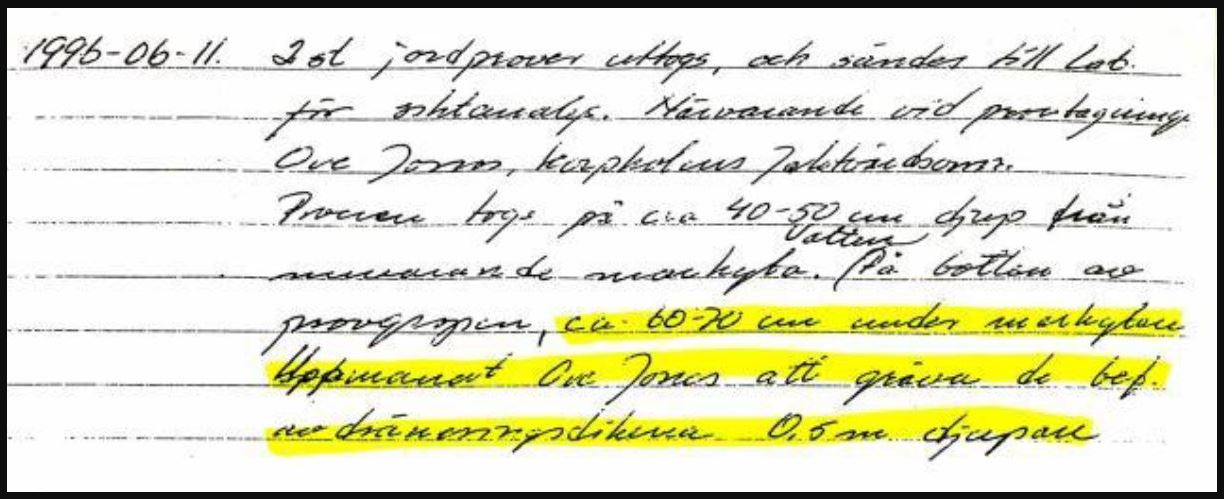 1996-06-11. 2 st jordprover uttogs, och sändes till Lab.
för siktanalys. Närvarande vid provtagning.
Ove Jonss,
Proven togs på cca 40-50 cm djup från
Vatten
nuvarande markyta. På botten av
provgropen, ca 60-70 cm under markytan
Uppmanat Ove Jonss att gräva de bef.
av dräneringsdikena 0,5 m djupare